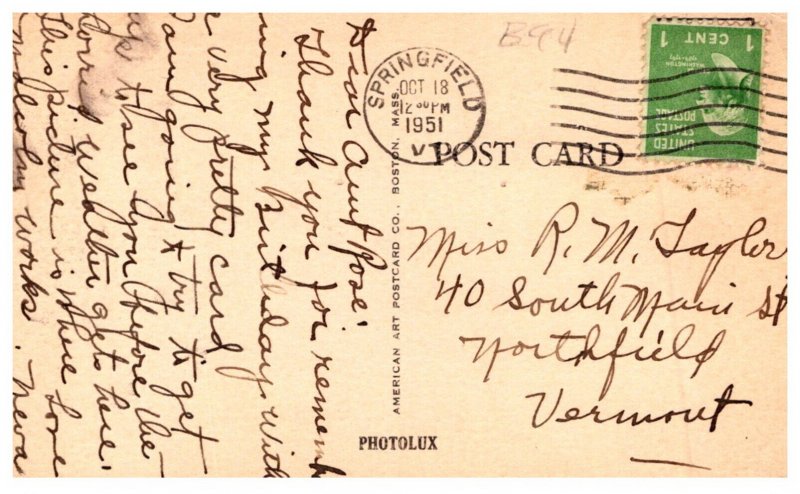 B94
SPRINGFIELD
OCT 18
12 30 PM
1951
VT
1 CENT 1
WASHINGTON
UNITED
STATES
POSTAGE
POST CARD
Miss R. M. Taylor
40 South Main St
Northfield
Vermont
AMERICAN ART POSTCARD CO., BOSTON, MASS.
PHOTOLUX
Dear Aunt Rose'
Thank you for rememb
ing my birthday with
a very pretty card
am going to try to get
up to see you before the
weather gets here.
This picture is where Love
Malcolm works. Neva